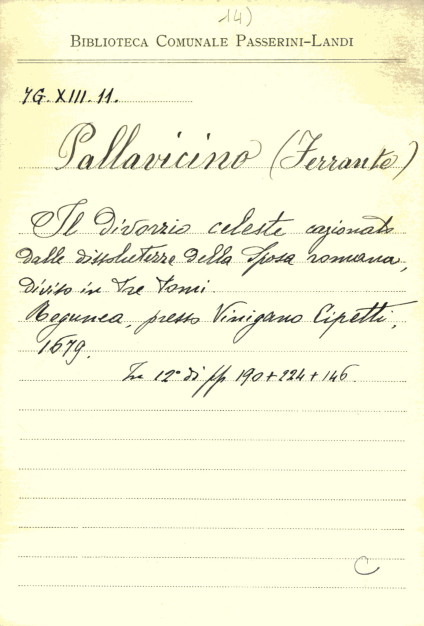 14)
BIBLIOTECA COMUNALE PASSERINI-LANDI
7G.XIII.11.
Pallavicino (Ferrante)
Il divorzio celeste cagionato
dalle dissolutezze della Sposa romana,
diviso in Tre Tomi.
Regunea, presso Vinigano Cipetti,
1679.
In 12° di pp 190+224+146.
C